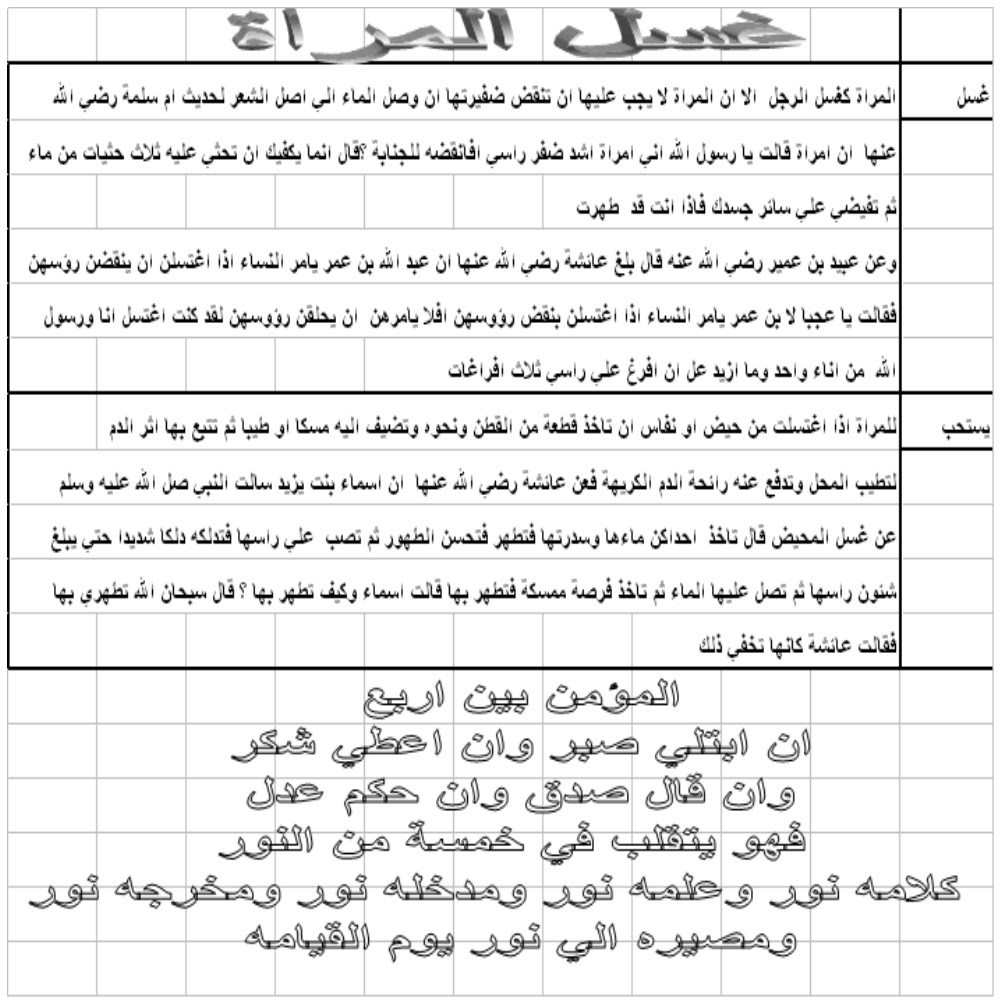 غسل المراة
غسل المراة كغسل الرجل الا ان المراة لا يجب عليها ان تنقض ضفيرتها ان وصل الماء الي اصل الشعر لحديث ام سلمة رضي الله
عنها ان امراة قالت يا رسول الله اني امراة اشد ضفر راسي افانقضه للجنابة ؟قال انما يكفيك ان تحثي عليه ثلاث حثيات من ماء
ثم تفيضي علي سائر جسدك فاذا انت قد طهرت
وعن عبيد بن عمير رضي الله عنه قال بلغ عائشة رضي الله عنها ان عبد الله بن عمر يامر النساء اذا اغتسلن ان ينقضن رؤسهن
فقالت يا عجبا لا بن عمر يامر النساء اذا اغتسلن بنقض رؤوسهن افلا يامرهن ان يحلقن رؤوسهن لقد كنت اغتسل انا ورسول
الله من اناء واحد وما ازيد عل ان افرغ علي راسي ثلاث افراغات
يستحب للمراة اذا اغتسلت من حيض او نفاس ان تاخذ قطعة من القطن ونحوه وتضيف اليه مسكا او طيبا ثم تتبع بها اثر الدم
لتطيب المحل وتدفع عنه رائحة الدم الكريهة فعن عائشة رضي الله عنها ان اسماء بنت يزيد سالت النبي صل الله عليه وسلم
عن غسل المحيض قال تاخذ احداكن ماءها وسدرتها فتطهر فتحسن الطهور ثم تصب علي راسها فتدلكه دلكا شديدا حتي يبلغ
شئون راسها ثم تصل عليها الماء ثم تاخذ فرصة ممسكة فتطهر بها قالت اسماء وكيف تطهر بها ؟ قال سبحان الله تطهري بها
فقالت عائشة كانها تخفي ذلك
المؤمن بين اربع
ان ابتلي صبر وان اعطي شكر
وان قال صدق وان حكم عدل
فهو يتقلب في خمسة من النور
كلامه نور وعلمه نور ومدخله نور ومخرجه نور
ومصيره الي نور يوم القيامه